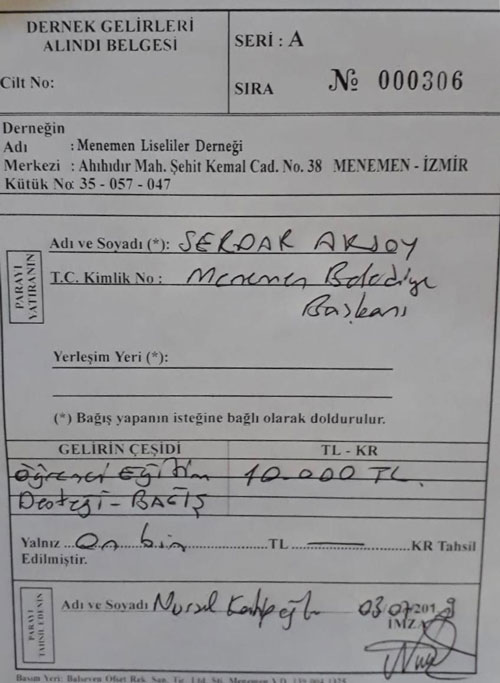 DERNEK GELİRLERİ
ALINDI BELGESİ
SERİ : A
Cilt No:
SIRA
№ 000306
Derneğin
Adı : Menemen Liseliler Derneği
Merkezi : Ahıhıdır Mah. Şehit Kemal Cad. No. 38 MENEMEN - İZMİR
Kütük No: 35 - 057 - 047
PARAYI
YATIRANIN
Adı ve Soyadı (*): SERDAR AKSOY
T.C. Kimlik No : Menemen Belediye
Başkanı
Yerleşim Yeri (*):
(*) Bağış yapanın isteğine bağlı olarak doldurulur.
GELİRİN ÇEŞİDİ
TL - KR
Öğrenci Eğitim 10.000 TL.
Desteği - BAĞIŞ
Yalnız ...On bin...TL ...KR Tahsil
Edilmiştir.
PARAYI
TAHSİL EDENİN
Adı ve Soyadı Nursel 03/07/2019
İMZA
Basım Yeri: Balseven Ofset Rek. San. Tic. Ltd. Şti. Menemen V.D.